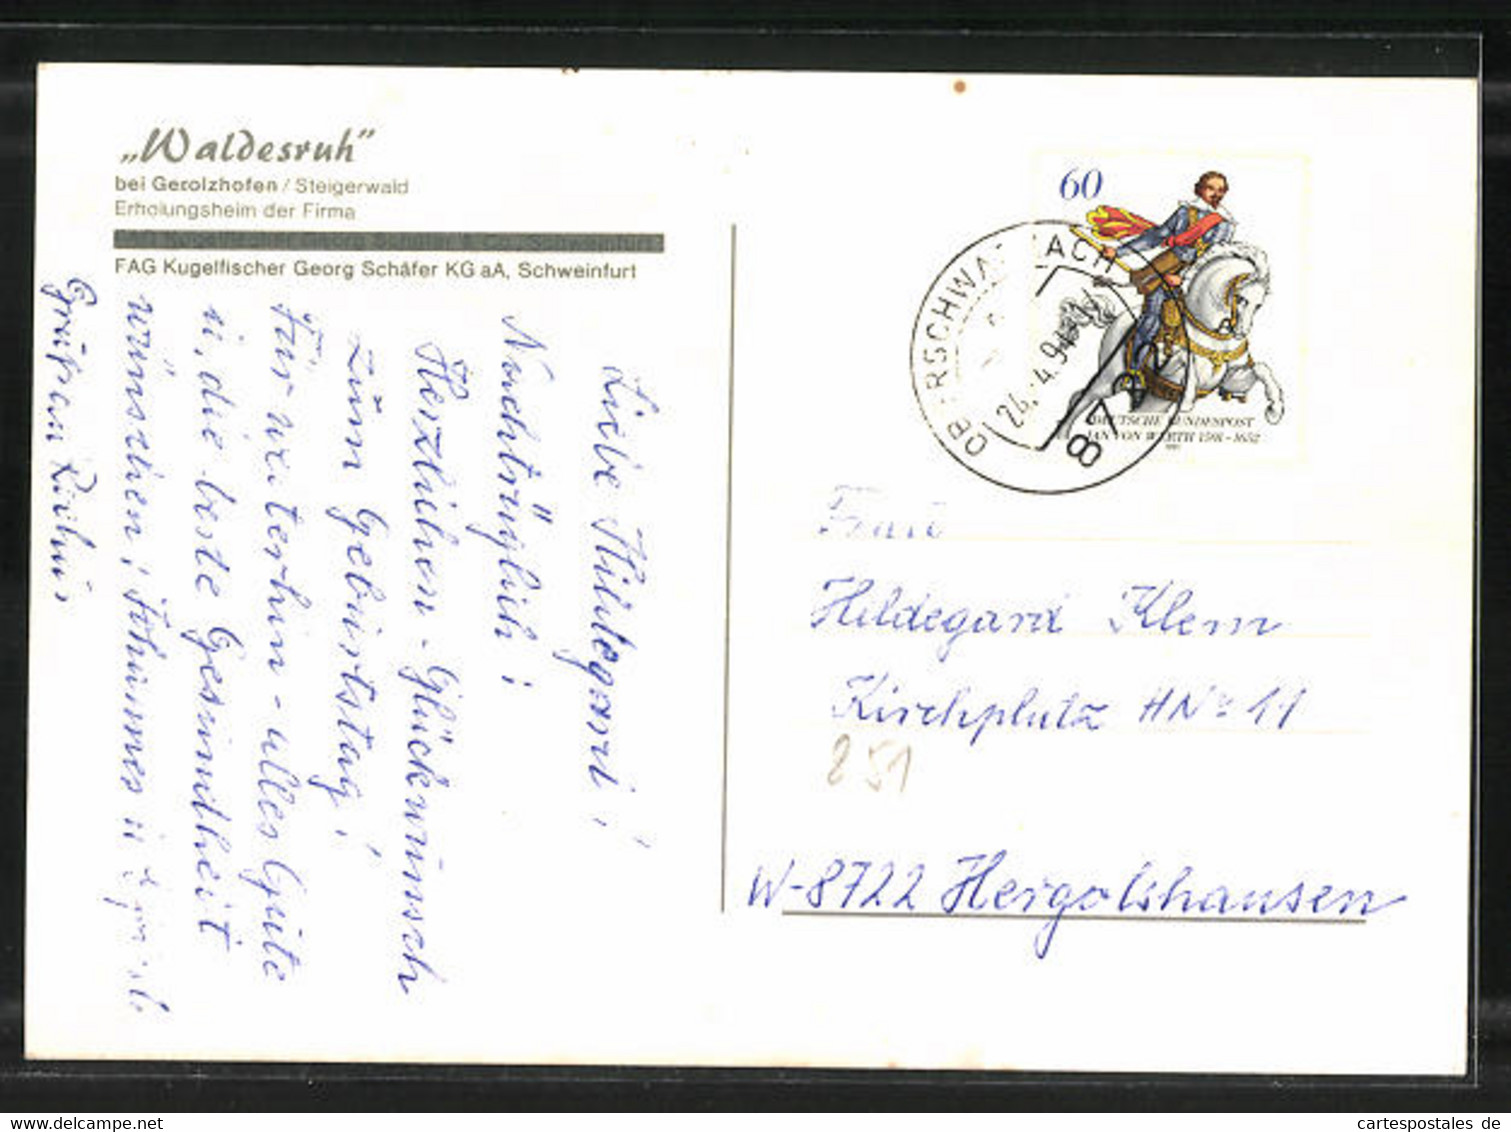 „Waldesruh"
bei Gerolzhofen / Steigerwald
Erholungsheim der Firma
FAG Kugelfischer Georg Schäfer KG aA, Schweinfurt
Liebe Hildegard!
Nachträglich:
Herzlichen-Glückwunsch
zum Geburtstag!
Für weiterhin - alles Gute
u. die beste Gesundheit
wünschen: Johannes u.
60
DEUTSCHE BUNDESPOST
JAN VON WERTH 1591-1652
OBERSCHWARZACH
24.-4.9
8722
Frau
Hildegard Klem
Kirchplatz HNº 11
851
W-8722 Hergolshausen
www.delcampe.net
cartespostales de